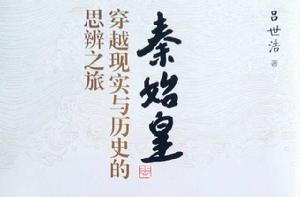 吕世浩 著
秦始皇
穿越现实与历史的
思辨之旅